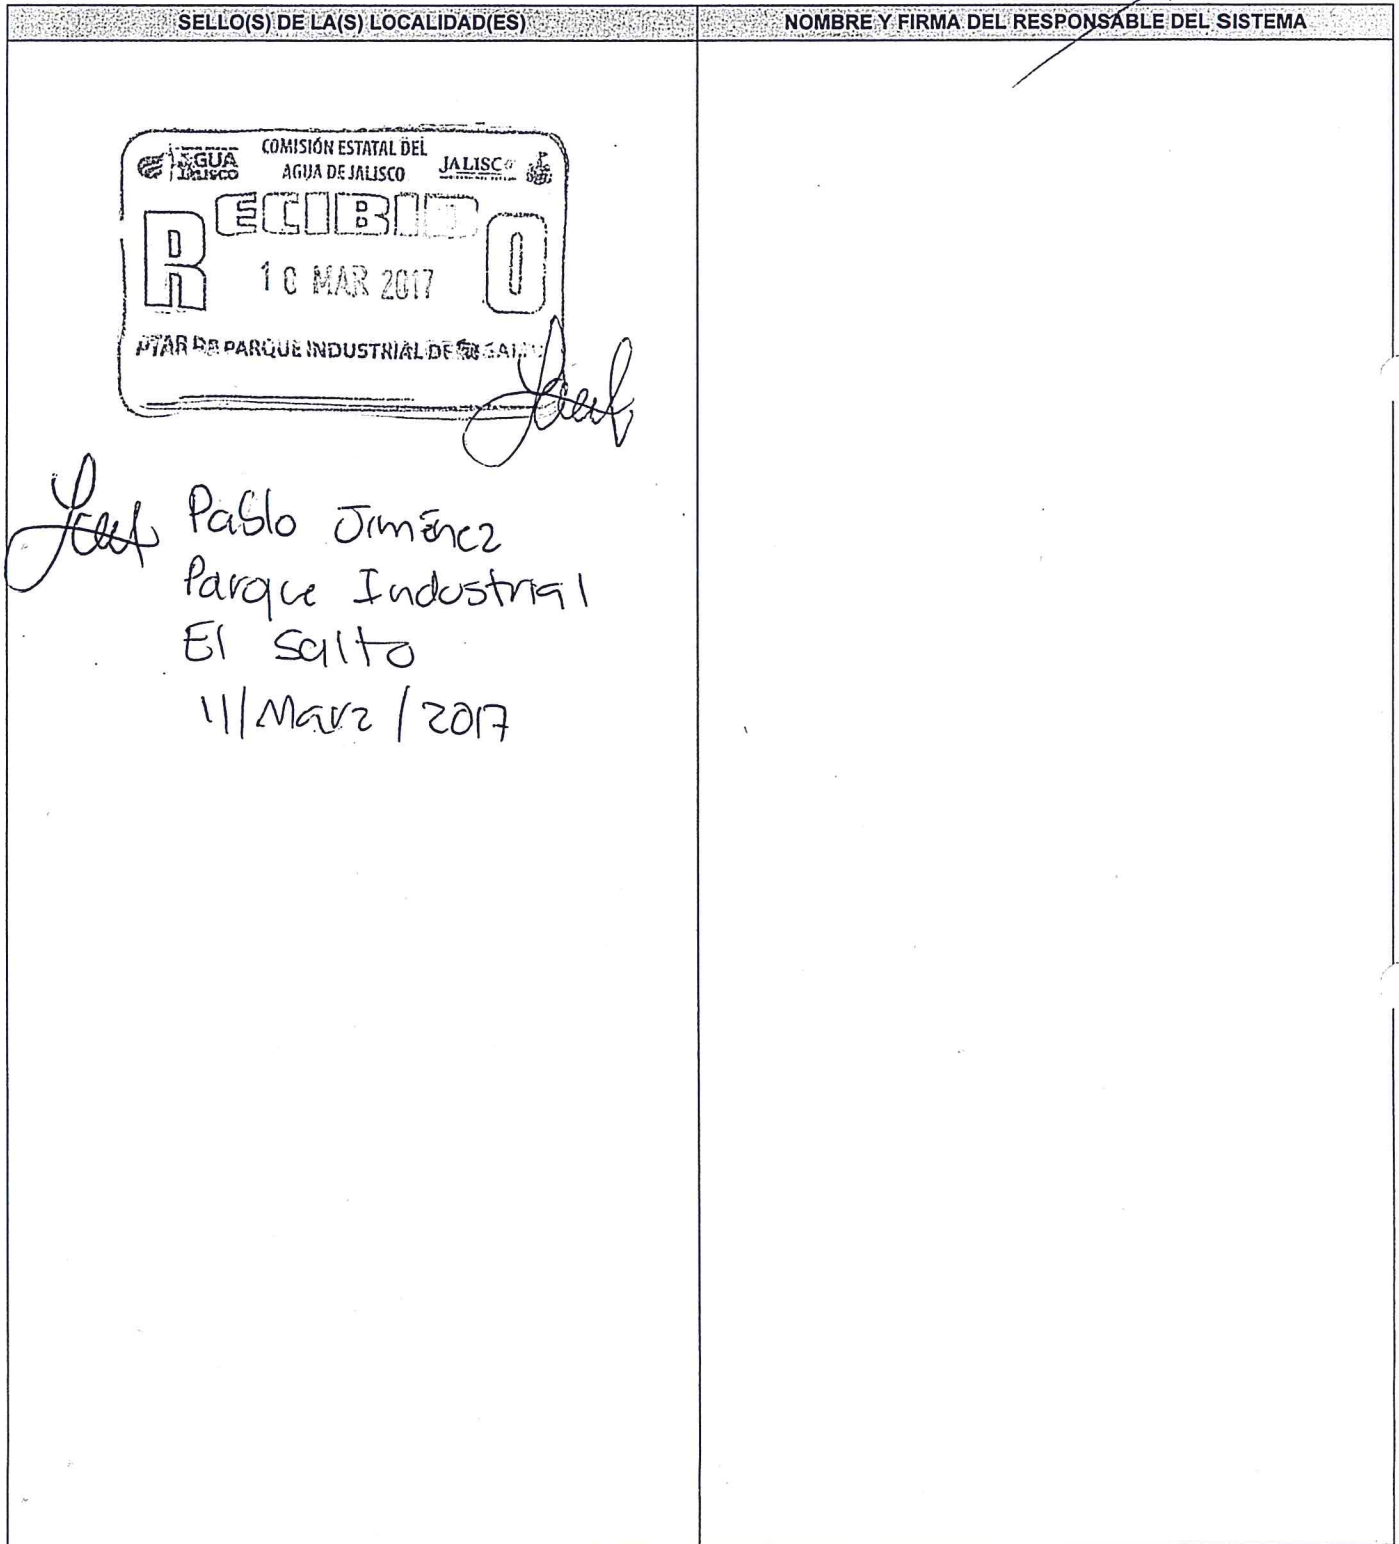 SELLO(S) DE LA(S) LOCALIDAD(ES)
NOMBRE Y FIRMA DEL RESPONSABLE DEL SISTEMA
AGUA
JALISCO
COMISIÓN ESTATAL DEL
AGUA DE JALISCO
JALISCO
RECIBIDO
MAR 2017
PTAR PARQUE INDUSTRIAL DE
Pablo Jiménez
Parque Industrial
El Salto
11/Marz/2017